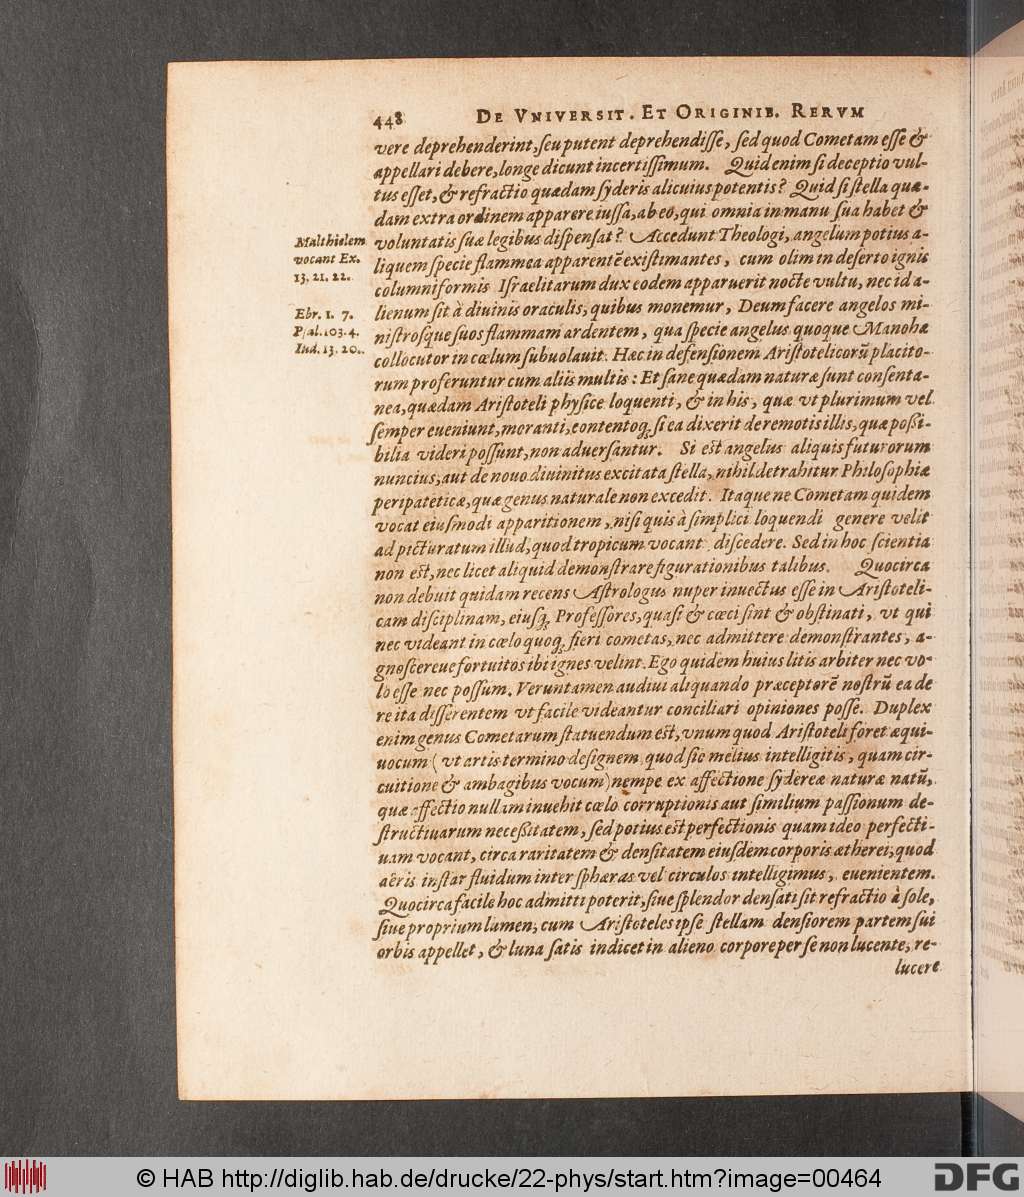 448 DE VNIVERSIT. ET ORIGINIB. RERVM
vere deprehenderint, seu putent deprehendisse, sed quod Cometam esse &
appellari debere, longe dicunt incertissimum. Quid enim si deceptio vul-
tus esset, & refractio quædam syderis alicuius potentis? Quid si stella quæ-
dam extra ordinem apparere iussa, ab eo, qui omnia in manu sua habet &
voluntatis suæ legibus dispensat? Accedunt Theologi, angelum potius a-
liquem specie flammea apparentē existimantes, cum olim in deserto ignis
columniformis Israelitarum dux eodem apparuerit nocte vultu, nec id a-
lienum sit à diuinis oraculis, quibus monemur, Deum facere angelos mi-
nistrosque suos flammam ardentem, qua specie angelus quoque Manohæ
collocutor in cœlum subuolauit. Hæc in defensionem Aristotelicorū placito-
rum proferuntur cum aliis multis: Et sane quædam naturæ sunt consenta-
nea, quædam Aristoteli physice loquenti, & in his, quæ vt plurimum vel
semper eueniunt, moranti, contentoq́, si ea dixerit de remotis illis, quæ possi-
bilia videri possunt, non aduersantur. Si est angelus aliquis futurorum
nuncius, aut de nouo diuinitus excitata stella, nihil detrahitur Philosophiæ
peripateticæ, quæ genus naturale non excedit. Itaque ne Cometam quidem
vocat eiusmodi apparitionem, nisi quis à simplici loquendi genere velit
ad picturatum illud, quod tropicum vocant discedere. Sed in hoc scientia
non est, nec licet aliquid demonstrare figurationibus talibus. Quocirca
non debuit quidam recens Astrologus nuper inuectus esse in Aristoteli-
cam disciplinam, eiusq́ Professores, quasi & cœci sint & obstinati, vt qui
nec videant in cœlo quoq́ fieri cometas, nec admittere demonstrantes, a-
gnoscereue fortuitos ibi ignes velint. Ego quidem huius litis arbiter nec vo-
lo esse nec possum. Veruntamen audiui aliquando præceptorē nostrū ea de
re ita disserentem vt facile videantur conciliari opiniones posse. Duplex
enim genus Cometarum statuendum est, vnum quod Aristoteli foret æqui-
uocum (vt artis termino designem quod sic melius intelligitis, quam cir-
cuitione & ambagibus vocum) nempe ex affectione sydereæ naturæ natū,
quæ affectio nullam inuehit cœlo corruptionis aut similium passionum de-
structiuarum necessitatem, sed potius est perfectionis quam ideo perfecti-
uam vocant, circa raritatem & densitatem eiusdem corporis ætherei, quod
aëris instar fluidum inter sphæras vel circulos intelligimus, euenientem.
Quocirca facile hoc admitti poterit, siue splendor densati sit refractio à sole,
siue proprium lumen, cum Aristoteles ipse stellam densiorem partem sui
orbis appellet, & luna satis indicet in alieno corpore per se non lucente, re-
lucere
Malthielem
vocant Ex.
13. 21. 22.
Ebr. 1. 7.
Psal. 103. 4.
Iud. 13. 20.
© HAB http://diglib.hab.de/drucke/22-phys/start.htm?image=00464
DFG